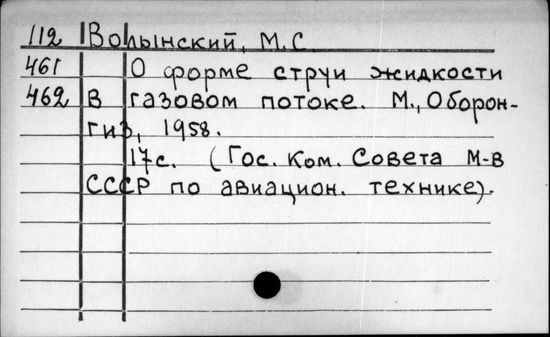 112 Волынский, М.С.
461 О форме струи жидкости
462 в газовом потоке. М., Оборон-
гиз, 1958.
17с. (Гос. Ком. Совета М-в
СССР по авиацион. технике).